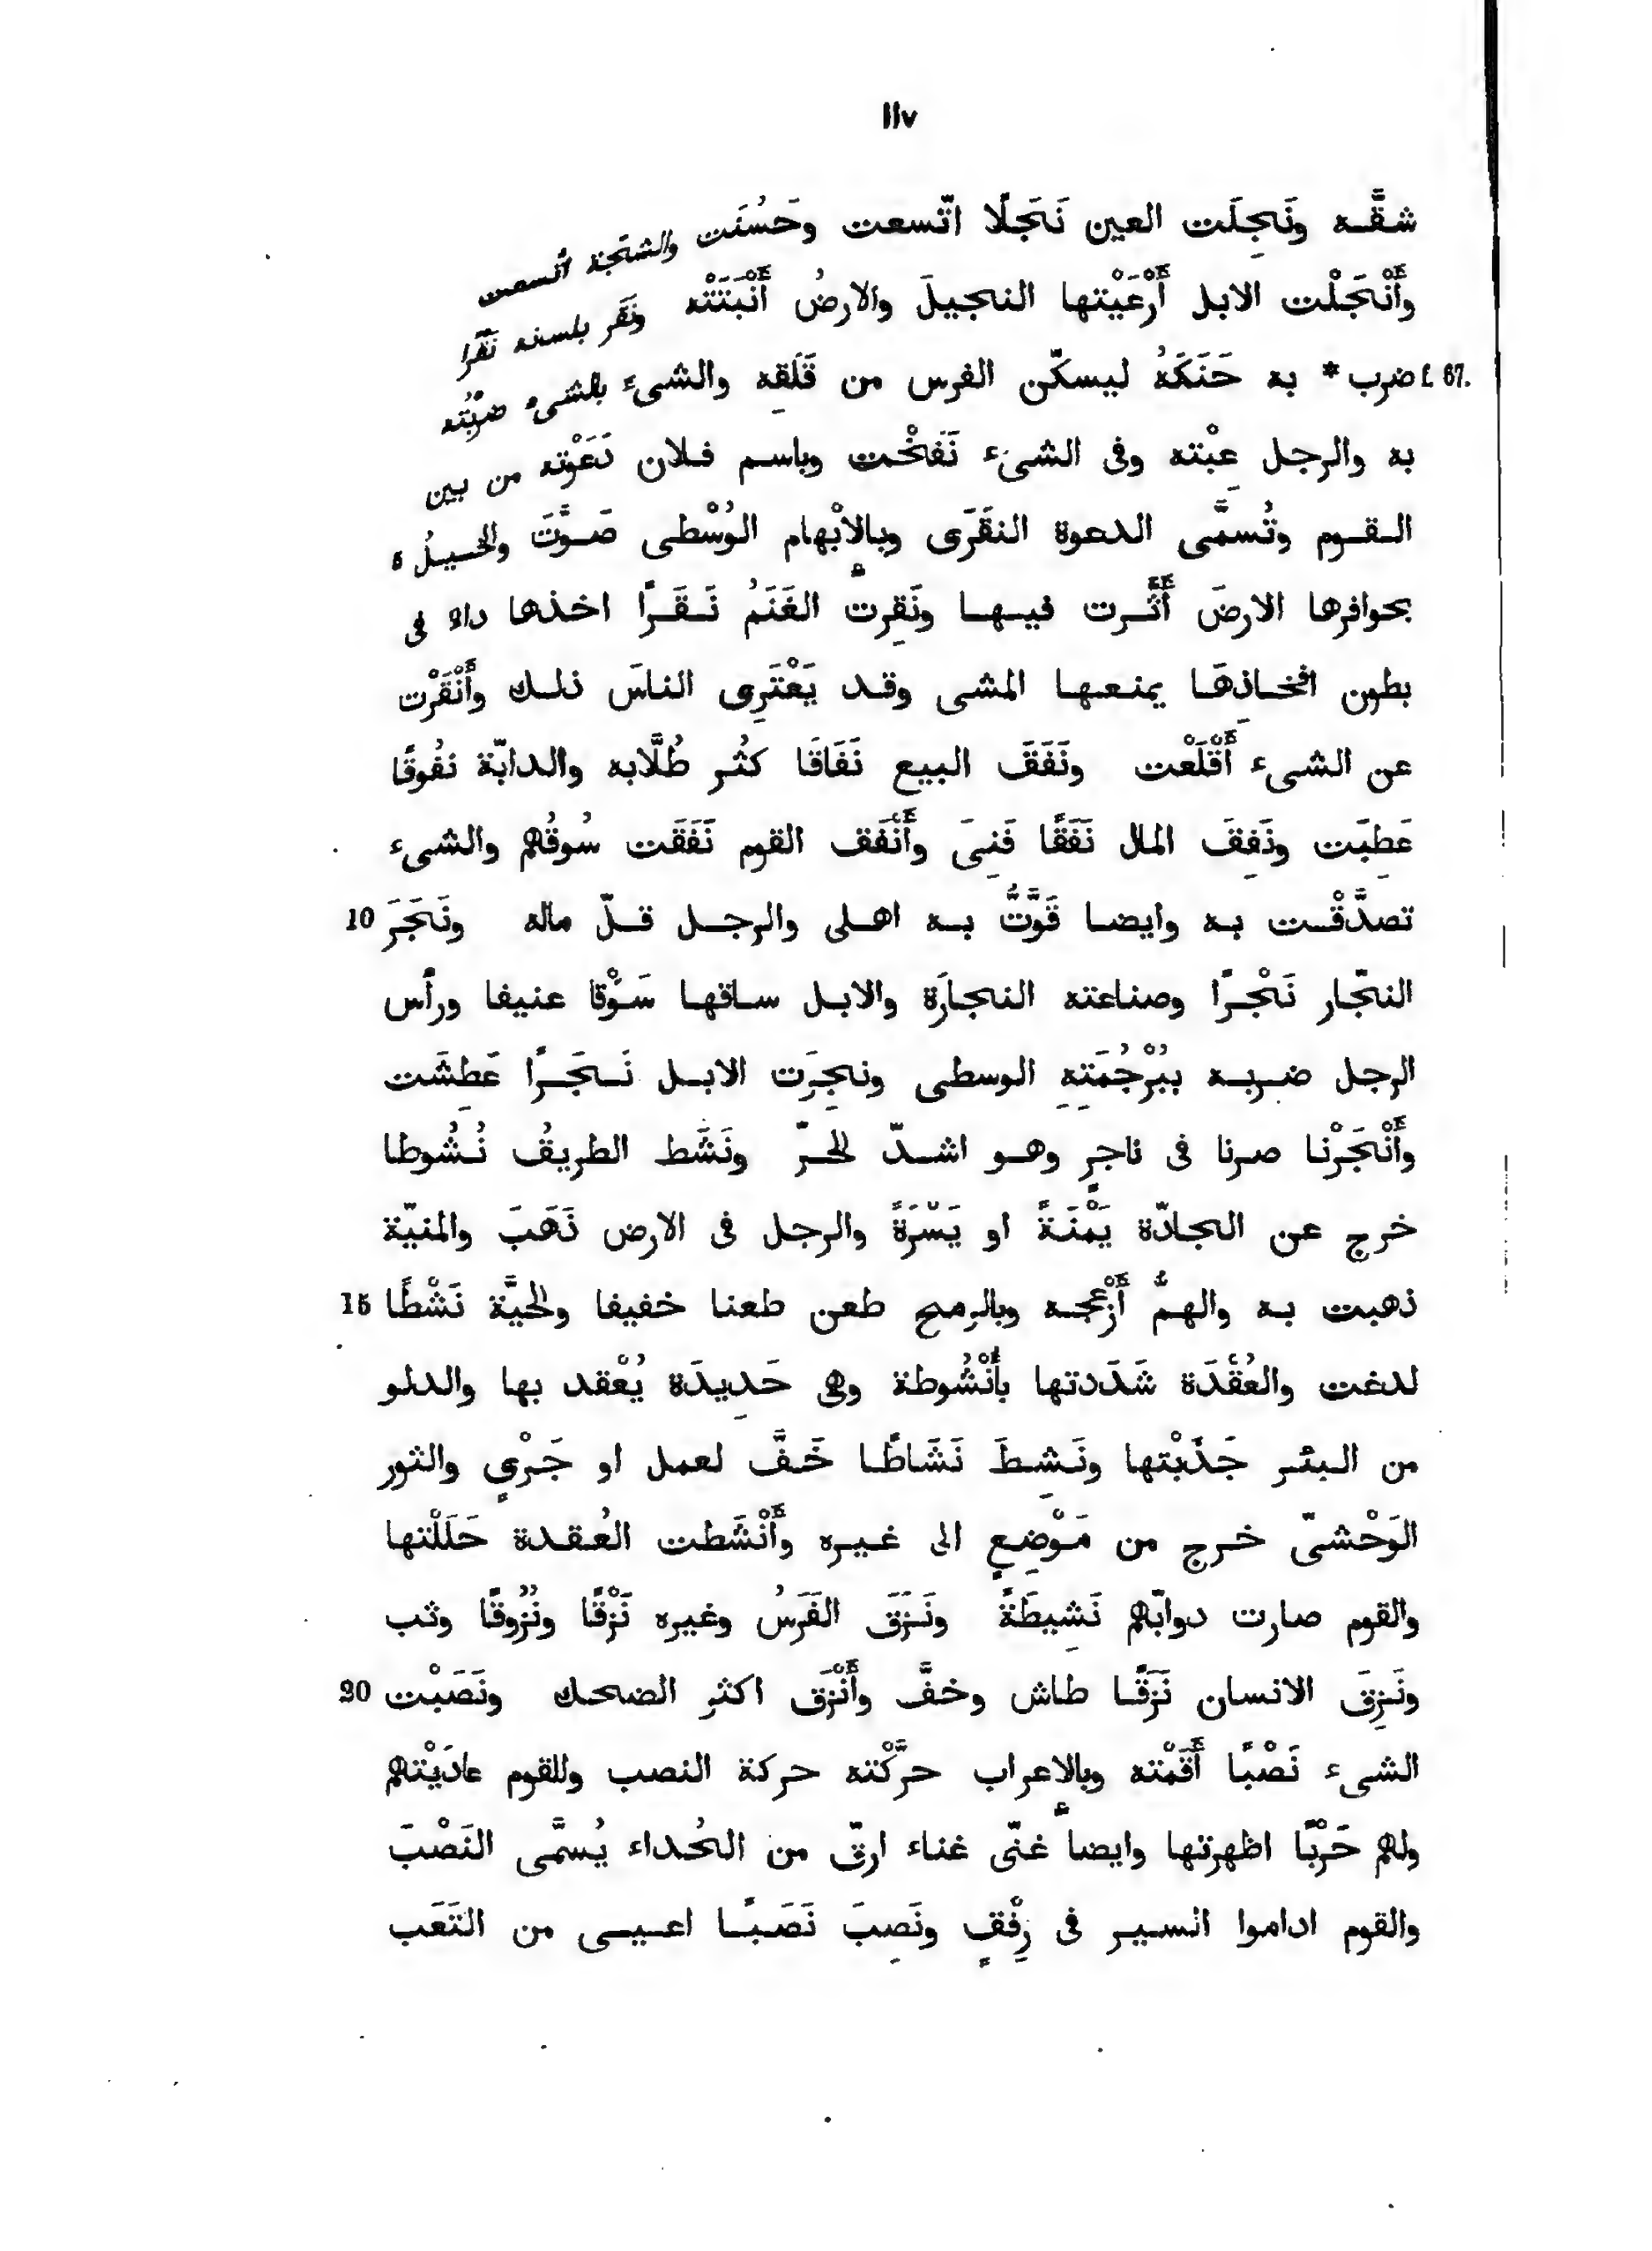 ١١٧
شقَّه ونَجِلَت العين نَجَلًا اتّسعت وحَسُنَت والشجّة اتّسعت
وأَنْجَلْت الابل أَرْعَيْتها النجيلَ والارضُ أَنْبَتَتْه ونَقَر بلسنه نَقْرا
f. 67. ضرب * به حَنَكَهُ ليسكّن الفرس من قَلَقِه والشىءَ بالشىء ضرَبْتُه
به والرجل عِبْته وفى الشىء نَفَخْت وباسم فلان دَعَوْته من بين
القوم وتُسمَّى الدعوة النقَرَى وبالإبْهام الوُسْطى صَوَّتَ والخيلُ ٥
بحوافرها الارضَ أثّرت فيها ونَقِرت الغَنَمُ نَقَرًا اخذها داء فى
بطون افخاذِهَا يمنعها المشى وقد يَعْتَرِى الناسَ ذلك وأَنْقَرْت
عن الشىء أَقْلَعْت ونَفَقَ البيع نَفَاقًا كثُر طُلَّابه والدابّة نفُوقًا
عَطِبَت ونَفِقَ المال نَفَقًا فَنِىَ وأَنْفَق القوم نَفَقَت سُوقُهم والشىء
تصدَّقْت به وايضا قَوَّتُّ به اهلى والرجل قلّ ماله ونَجَرَ 10
النجّار نَجْرًا وصناعته النجارَة والابل ساقها سَوْقا عنيفا ورأس
الرجل ضربه ببُرْجُمَتِهِ الوسطى ونجِرَت الابل نَجَرًا عَطِشَت
وأَنْجَرْنا صرنا فى ناجرٍ وهو اشدّ الحرّ ونَشَط الطريقُ نُشُوطا
خرج عن الجادّة يَمْنَةً او يَسْرَةً والرجل فى الارض ذَهَبَ والمنيّة
ذهبت به والهمُّ أَزْعجه وبالرمح طعن طعنا خفيفا والحيَّة نَشْطًا 15
لدغت والعُقْدَة شَدَدتها بأُنْشُوطة وهى حَدِيدَة يُعْقد بها والدلو
من البئر جَذَبْتها ونَشِطَ نَشَاطًا خَفَّ لعمل او جَرْىٍ والثور
الوَحْشىّ خرج من مَوْضِعٍ الى غيره وأَنْشَطت العُقدة حَلَلْتها
والقوم صارت دوابّهم نَشِيطَةً ونَزَقَ الفَرَسُ وغيره نَزْقًا ونُزُوقًا وثب
ونَزِقَ الانسان نَزَقًا طاش وخفَّ وأَنْزَق اكثر الضحك ونَصَبْت 20
الشىء نَصْبًا أَقَمْته وبالإعراب حرَّكْته حركة النصب وللقوم عادَيْتهم
ولهم حَرْبًا اظهرتها وايضا غنّى غناء ارقّ من الحُداء يُسمَّى النَصْبَ
والقوم اداموا السير فى رِفْقٍ ونَصِبَ نَصَبًا اعيى من التَعَب